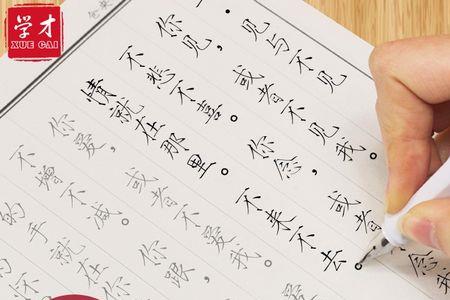 学才
XUE CAI
见与不见
你见，或者不见我。
不悲不喜。你念，或者念我
情就在那里。不来不去。
你爱，或者不爱我。
不增不减。你跟，
的手就在你